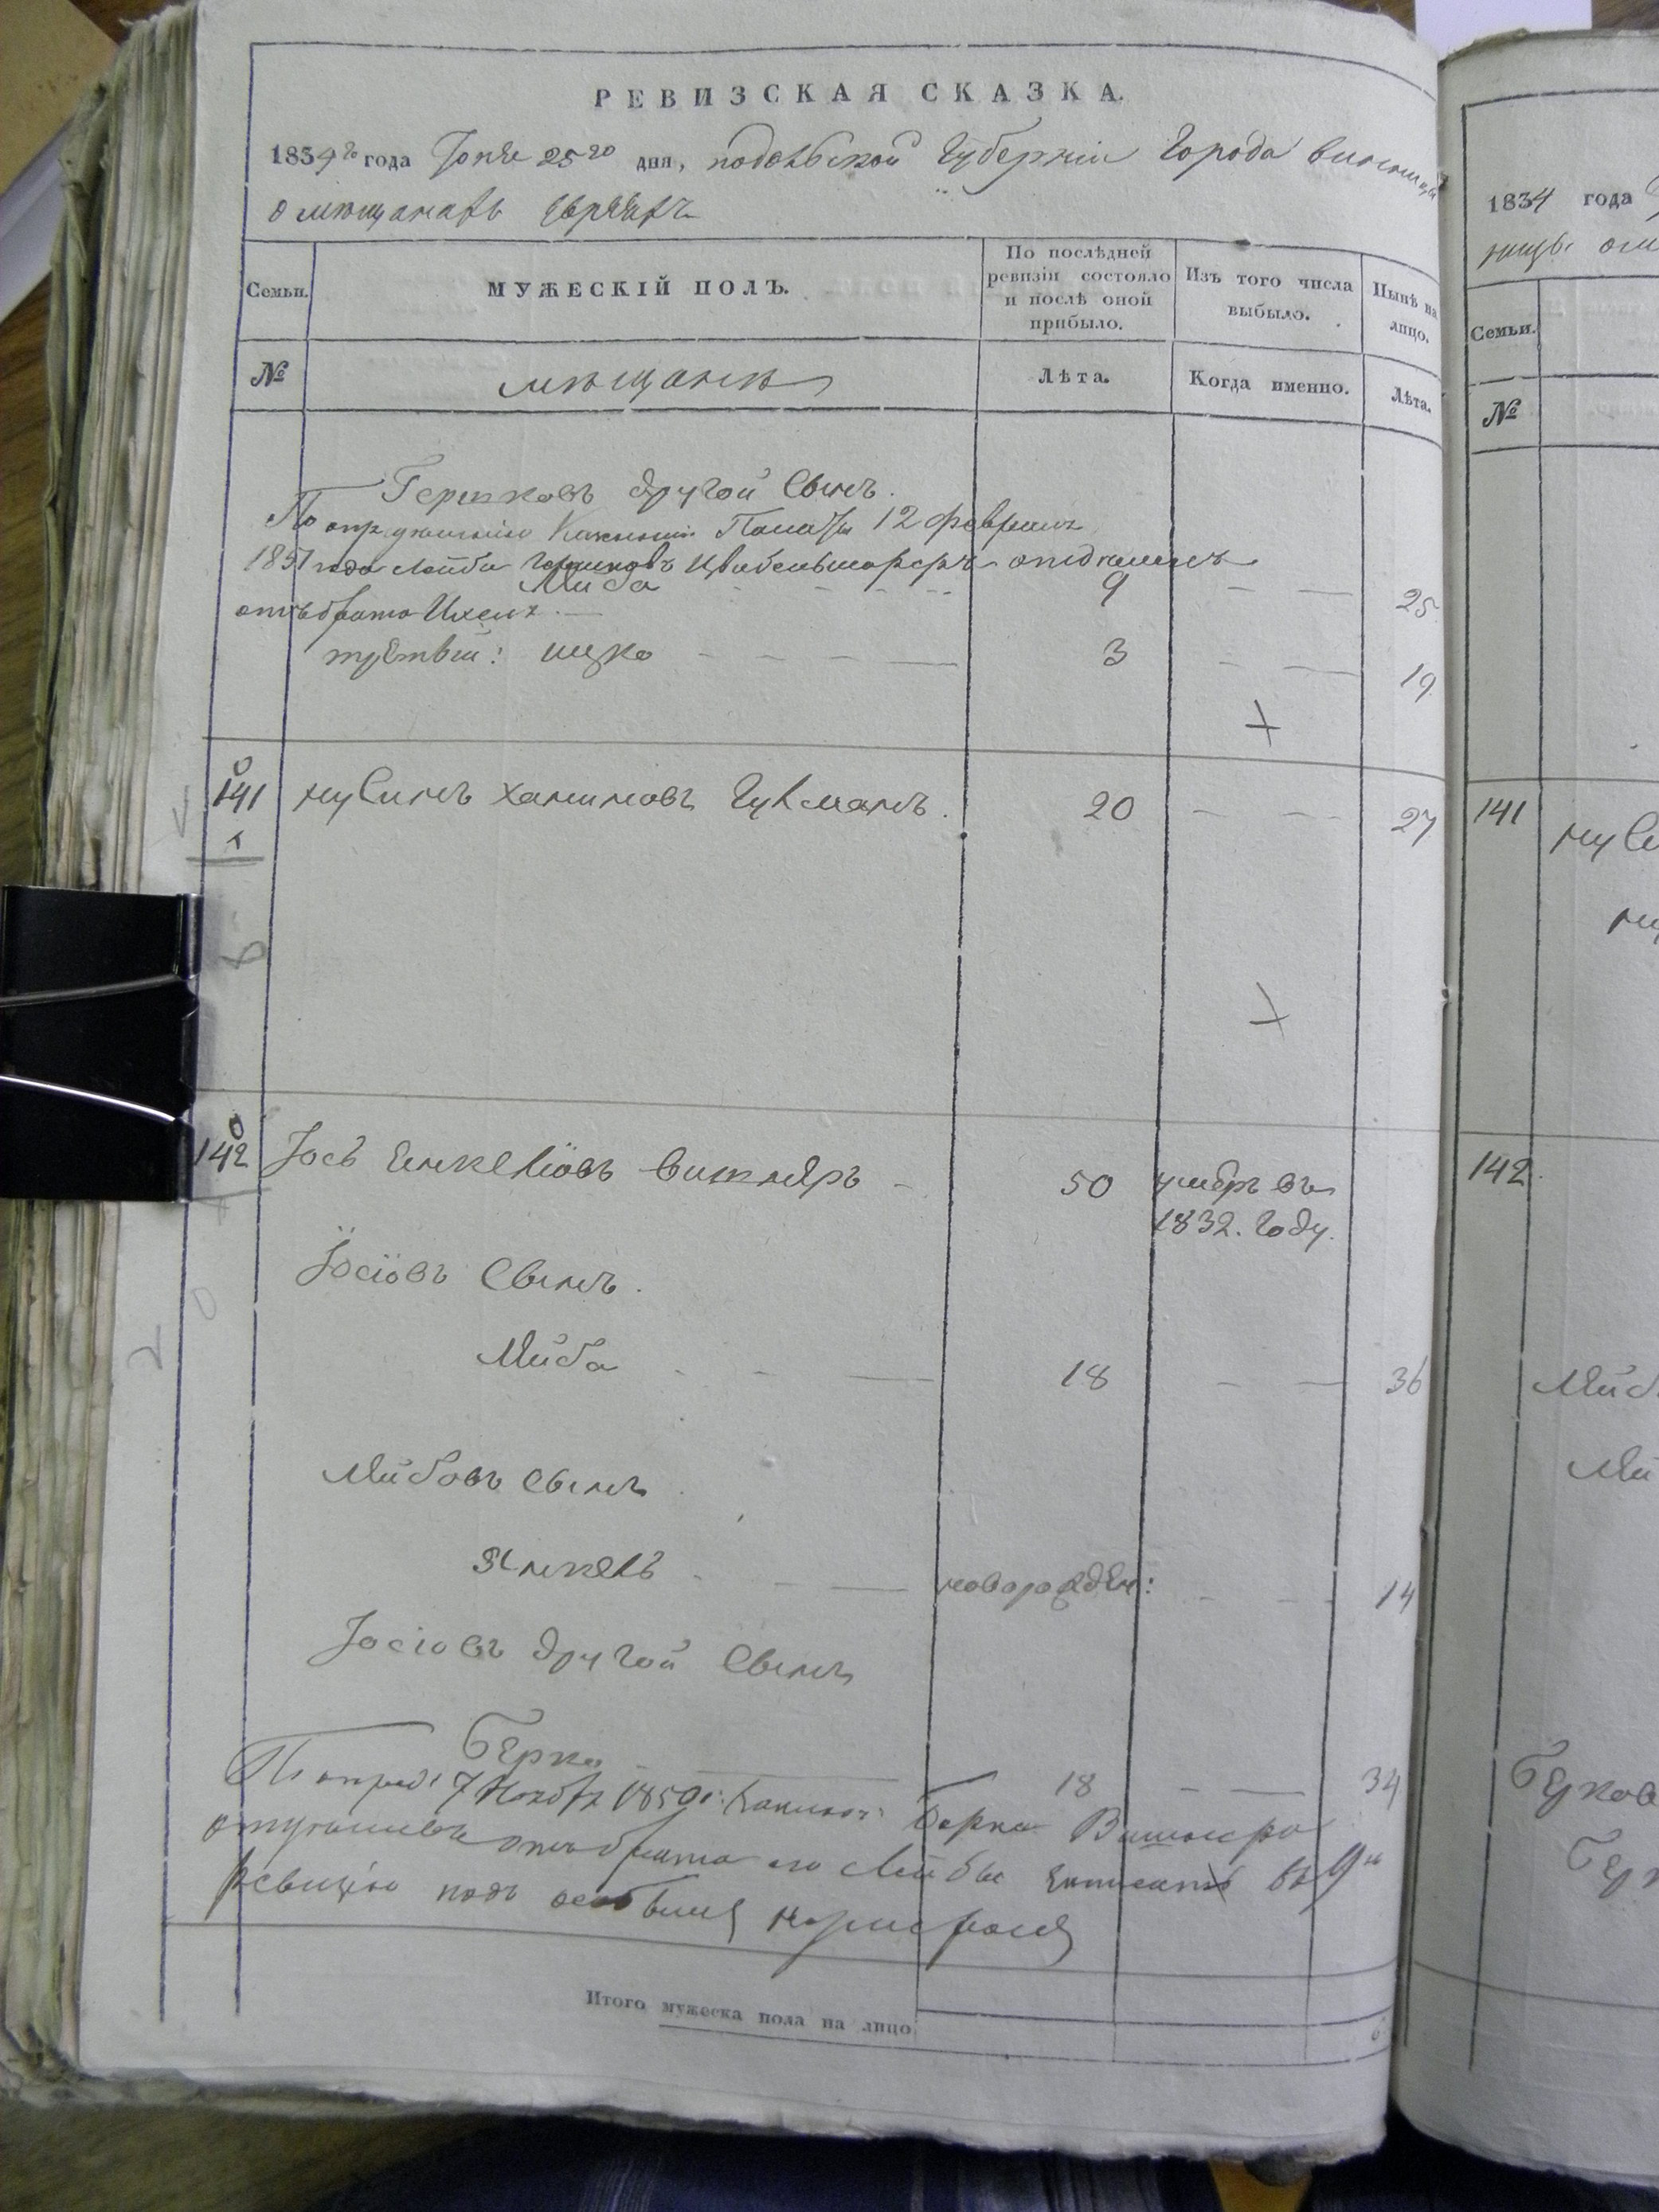 РЕВИЗСКАЯ СКАЗКА.
1834го года Іюня 25го дня, подольской Губерніи Города винницы
о мещанахъ Евреяхъ
Семьи. МУЖЕСКІЙ ПОЛЪ. По послѣдней ревизіи состояло и послѣ оной прибыло. Изъ того числа выбыло. Нынѣ на лицо.
№ мещане Лѣта. Когда именно. Лѣта.
Гершковъ другой Сынъ.
По Казенной Палаты 12 февраля
1851 года Лейба Гершковъ отделенъ
Лейба 9 25
отъ брата Ихеля
третьій: ицко 3 19
141 нусинъ Хаимовъ Гухманъ. 20 27
142 Іось Енкеліовъ вишняръ 50 умеръ въ
1832. Году.
Іосіовъ Сынъ.
Лейба 18 36
Лейбовъ Сынъ
Янкель новорожден: 14
Іосіовъ другой Сынъ
Берко 18 34
По опред. 7 Ноября 1850 г. Берка
отъ брата его Лейбы въ 9ю
Ревизію подъ особымъ нумеромъ
Итого мужеска пола на лицо
1834 года
Семьи.
№
141
142.